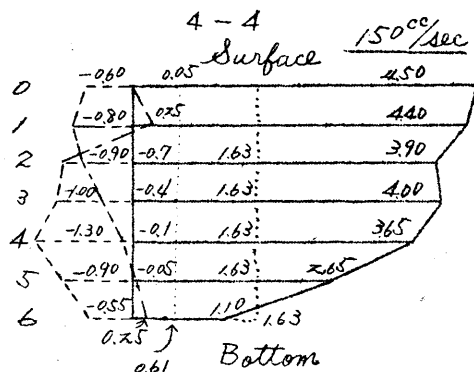 4 - 4
150 cc/sec
Surface
0 -0.60 0.05 4.50
1 -0.80 0.25 4.40
2 -0.90 -0.7 1.63 3.90
3 -1.00 -0.4 1.63 4.00
4 -1.30 -0.1 1.63 3.65
5 -0.90 -0.05 1.63 2.65
6 -0.55 1.10 1.63
0.25
0.61 Bottom